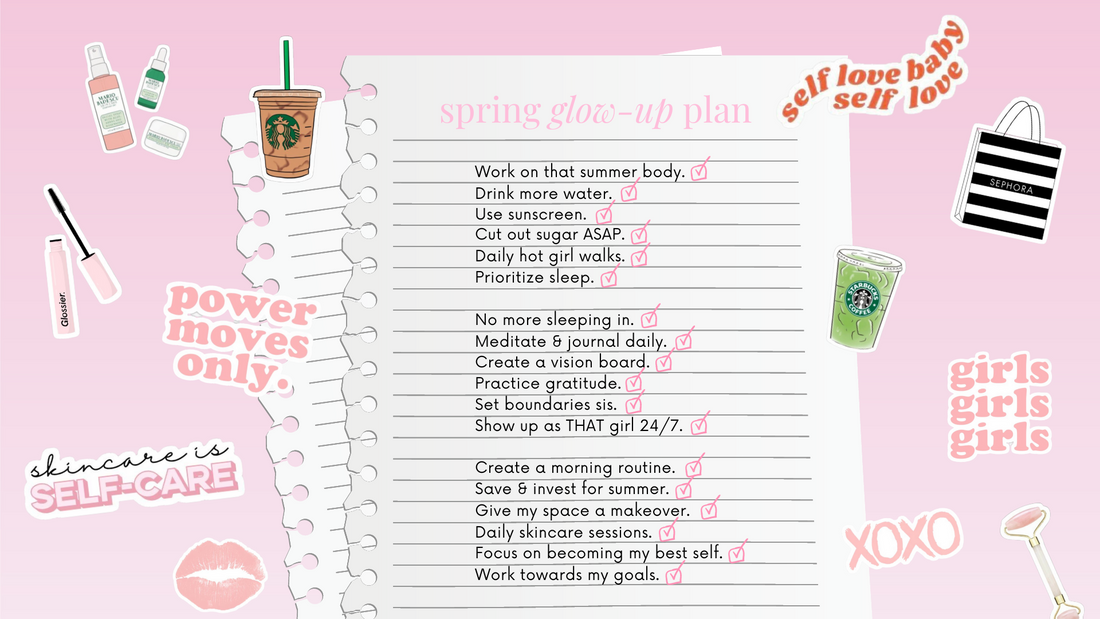 spring glow-up plan
Work on that summer body.
Drink more water.
Use sunscreen.
Cut out sugar ASAP.
Daily hot girl walks.
Prioritize sleep.
No more sleeping in.
Meditate & journal daily.
Create a vision board.
Practice gratitude.
Set boundaries sis.
Show up as THAT girl 24/7.
Create a morning routine.
Save & invest for summer.
Give my space a makeover.
Daily skincare sessions.
Focus on becoming my best self.
Work towards my goals.
MARIO BADESCU
Glossier.
power
moves
only.
skincare is
SELF-CARE
self love baby
self love
SEPHORA
STARBUCKS
COFFEE
girls
girls
girls
XOXO